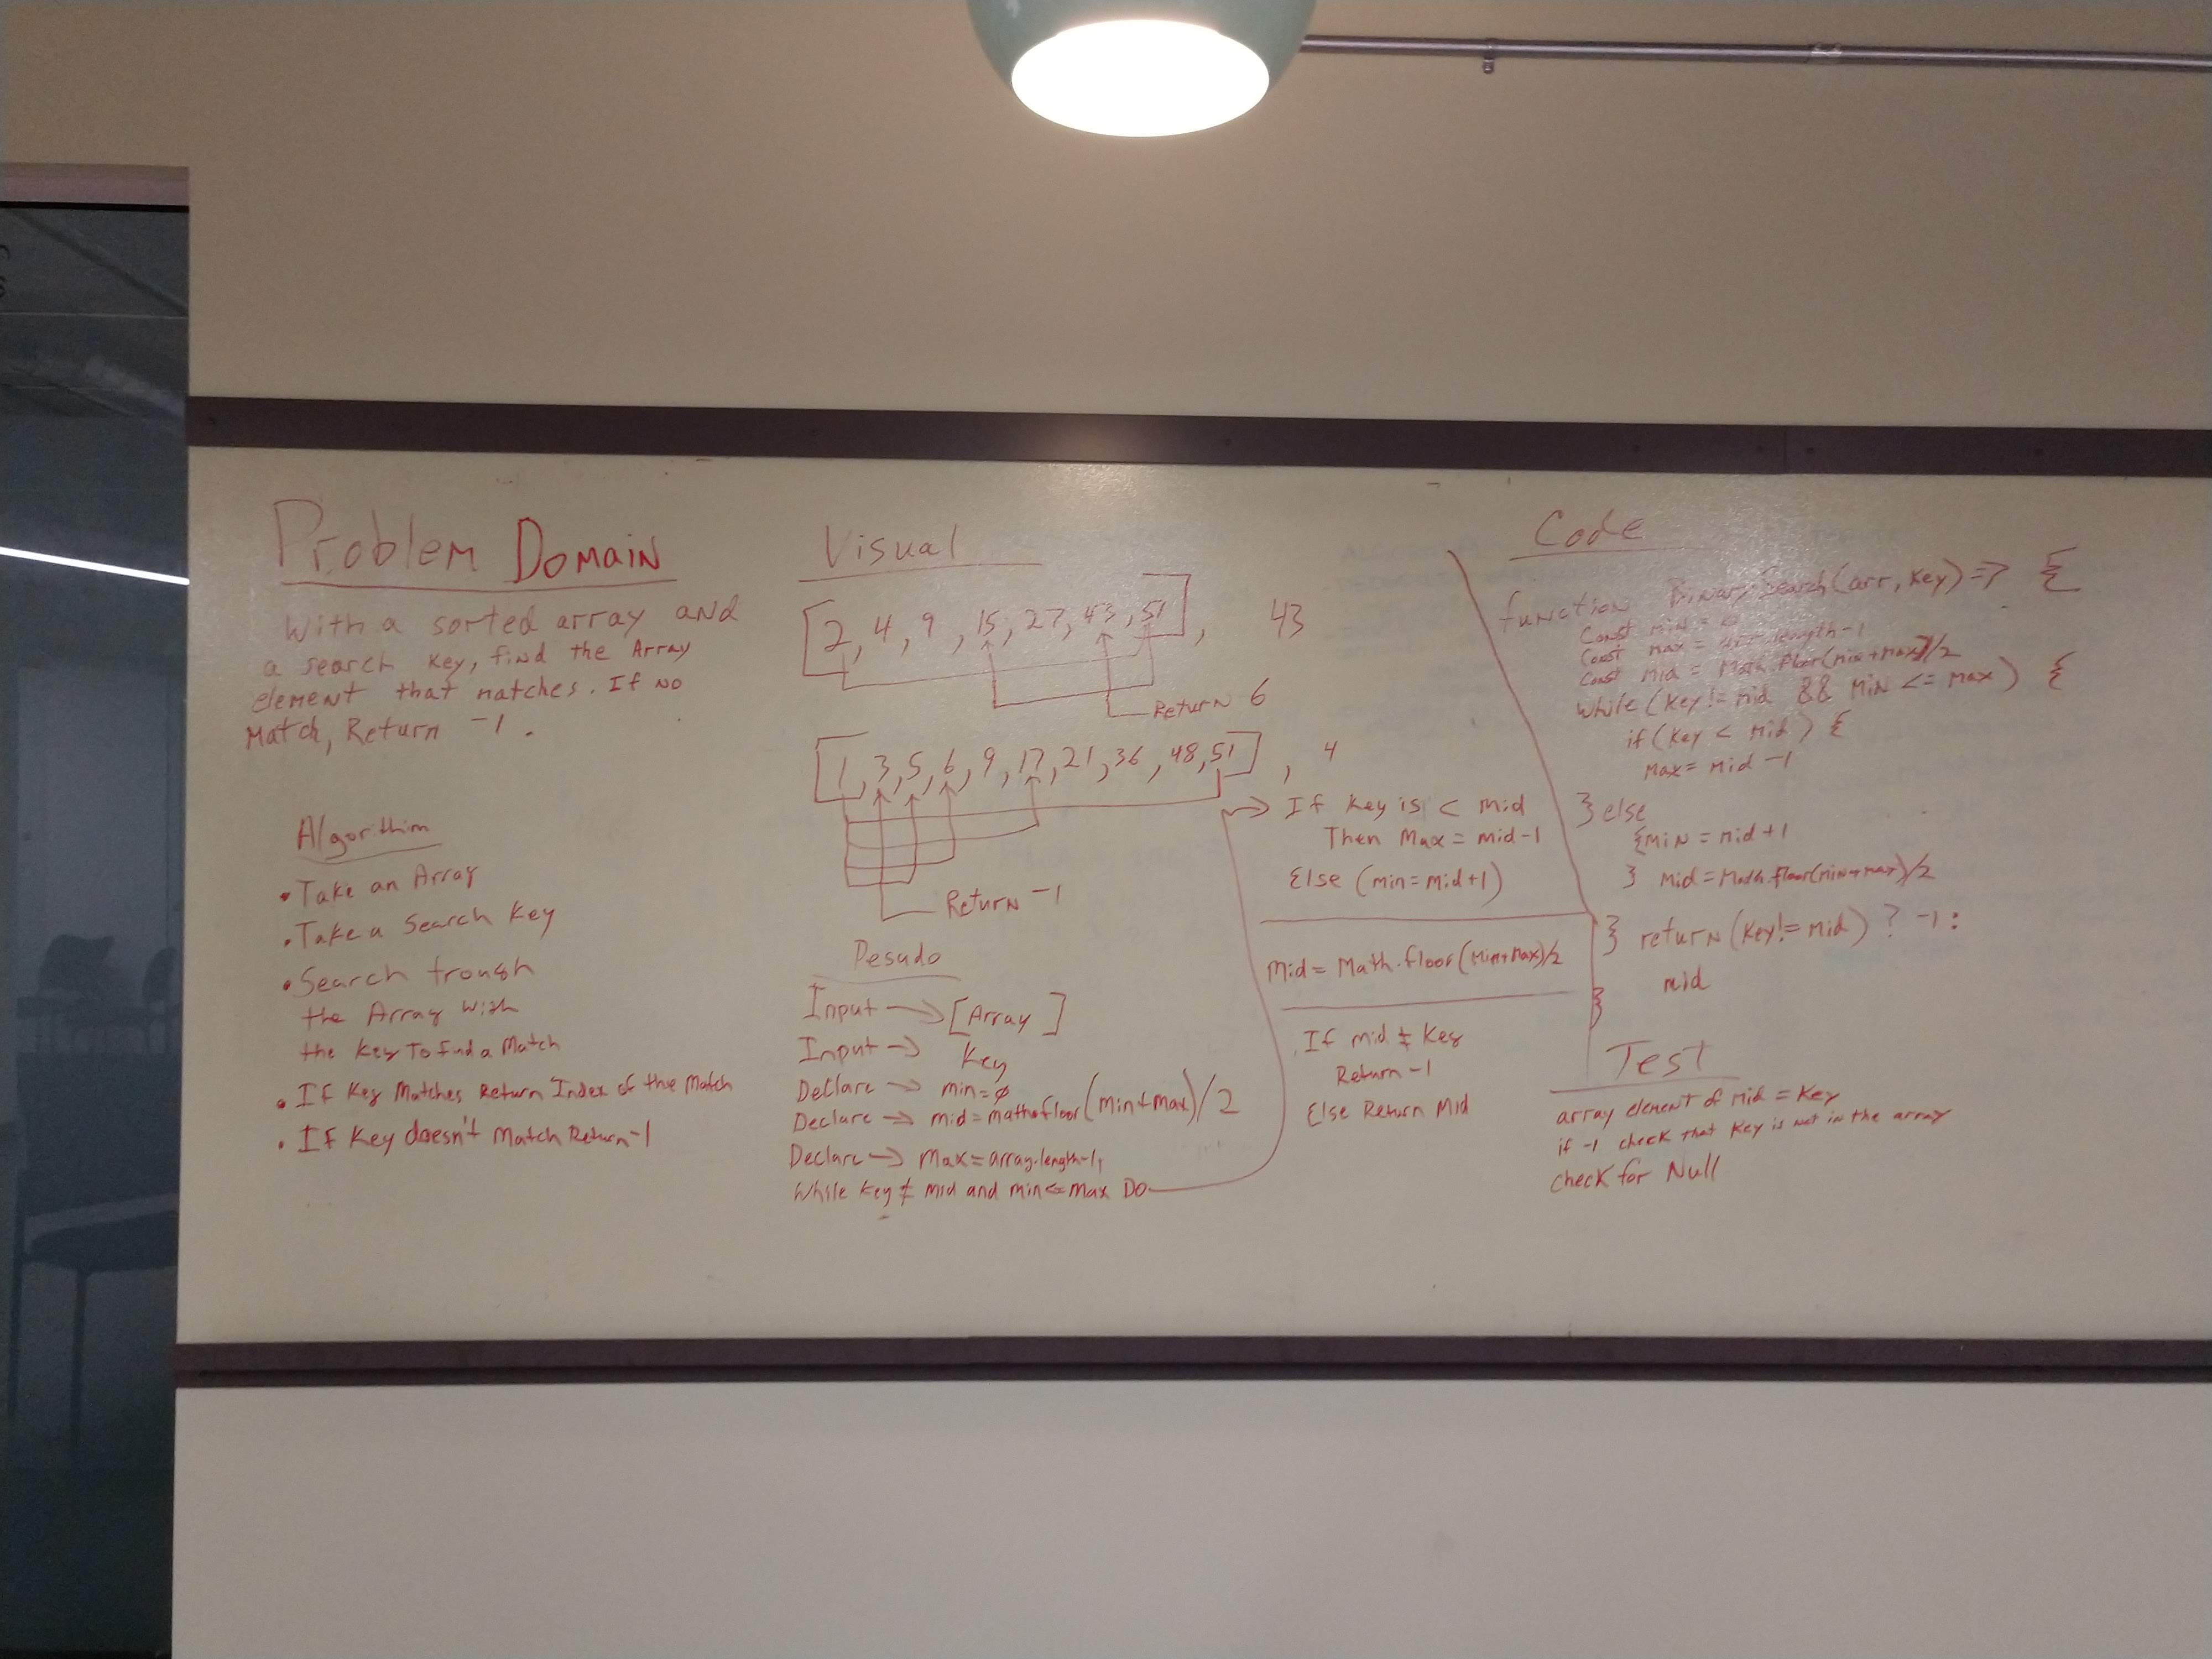 Problem Domain
With a sorted array and
a search key, find the Array
element that matches. If no
Match, Return -1.
Algorithim
• Take an Array
• Take a Search Key
• Search trough
the Array with
the Key To find a Match
• If Key Matches Return Index of the Match
• If Key doesn't Match Return -1
Visual
[2, 4, 9, 15, 27, 43, 51], 43
Return 6
[1, 3, 5, 6, 9, 17, 21, 36, 48, 51], 4
Return -1
Pesudo
Input → [Array]
Input → Key
Declare → min = 0
Declare → mid = math.floor(min+max)/2
Declare → Max = array.length-1,
While Key ≠ mid and min <= max Do
→ If Key is < mid
Then Max = mid-1
Else (min = mid+1)
Mid = Math.floor(min+max)/2
If mid ≠ Key
Return -1
Else Return Mid
Code
function BinarySearch(arr, Key) => {
Const min = 0
Const max = arr.length-1
Const mid = Math.floor(min+max)/2
while (Key != mid && min <= max) {
if (Key < mid) {
Max = mid -1
} else
{min = mid+1
} mid = Math.floor(min+max)/2
} return (Key != mid) ? -1 :
mid
}
Test
array element of mid = Key
if -1 check that Key is not in the array
check for Null